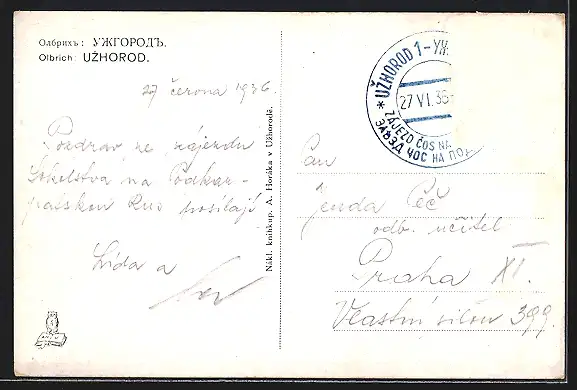 Олбрихъ: УЖГОРОДЪ.
Olbrich: UŽHOROD.
27 června 1936.
Pozdrav ze zájezdu
Sokolstva na Podkar-
patskou Rus posílají
Lída a
Nákl. knihkup. A. Horáka v Užhorodě.
* UŽHOROD 1 - УЖ
27 VI. 36
ZÁJEZD ČOS NA
ЗАѢЗД ЧОС НА ПОД
Pan
Jenda Peč
odb. učitel
Praha XI.
Vlastní silou 399.